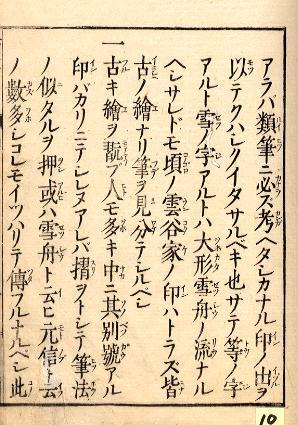 アラバ類筆ニ必ズ考ヘタシカナル印ノ出ヲ
以テクハシクイタサルベキ也サテ等ノ字
アルト雪ノ字アルトハ大形雪舟ノ流ナル
ヘシサレドモ頃ノ雲谷家ノ印ハトラズ皆
古ノ繪ナリ筆ヲ見分テシルヘシ
一古キ繪ヲ翫フ人モ多キ中ニ其別號アル
印バカリニテシレヌアレバ摺ヲトシテ筆法
ノ似タルヲ押或ハ雪舟ト云ヒ元信ト云
ノ數多シコレモイツハリテ傳フルナルベシ此
10